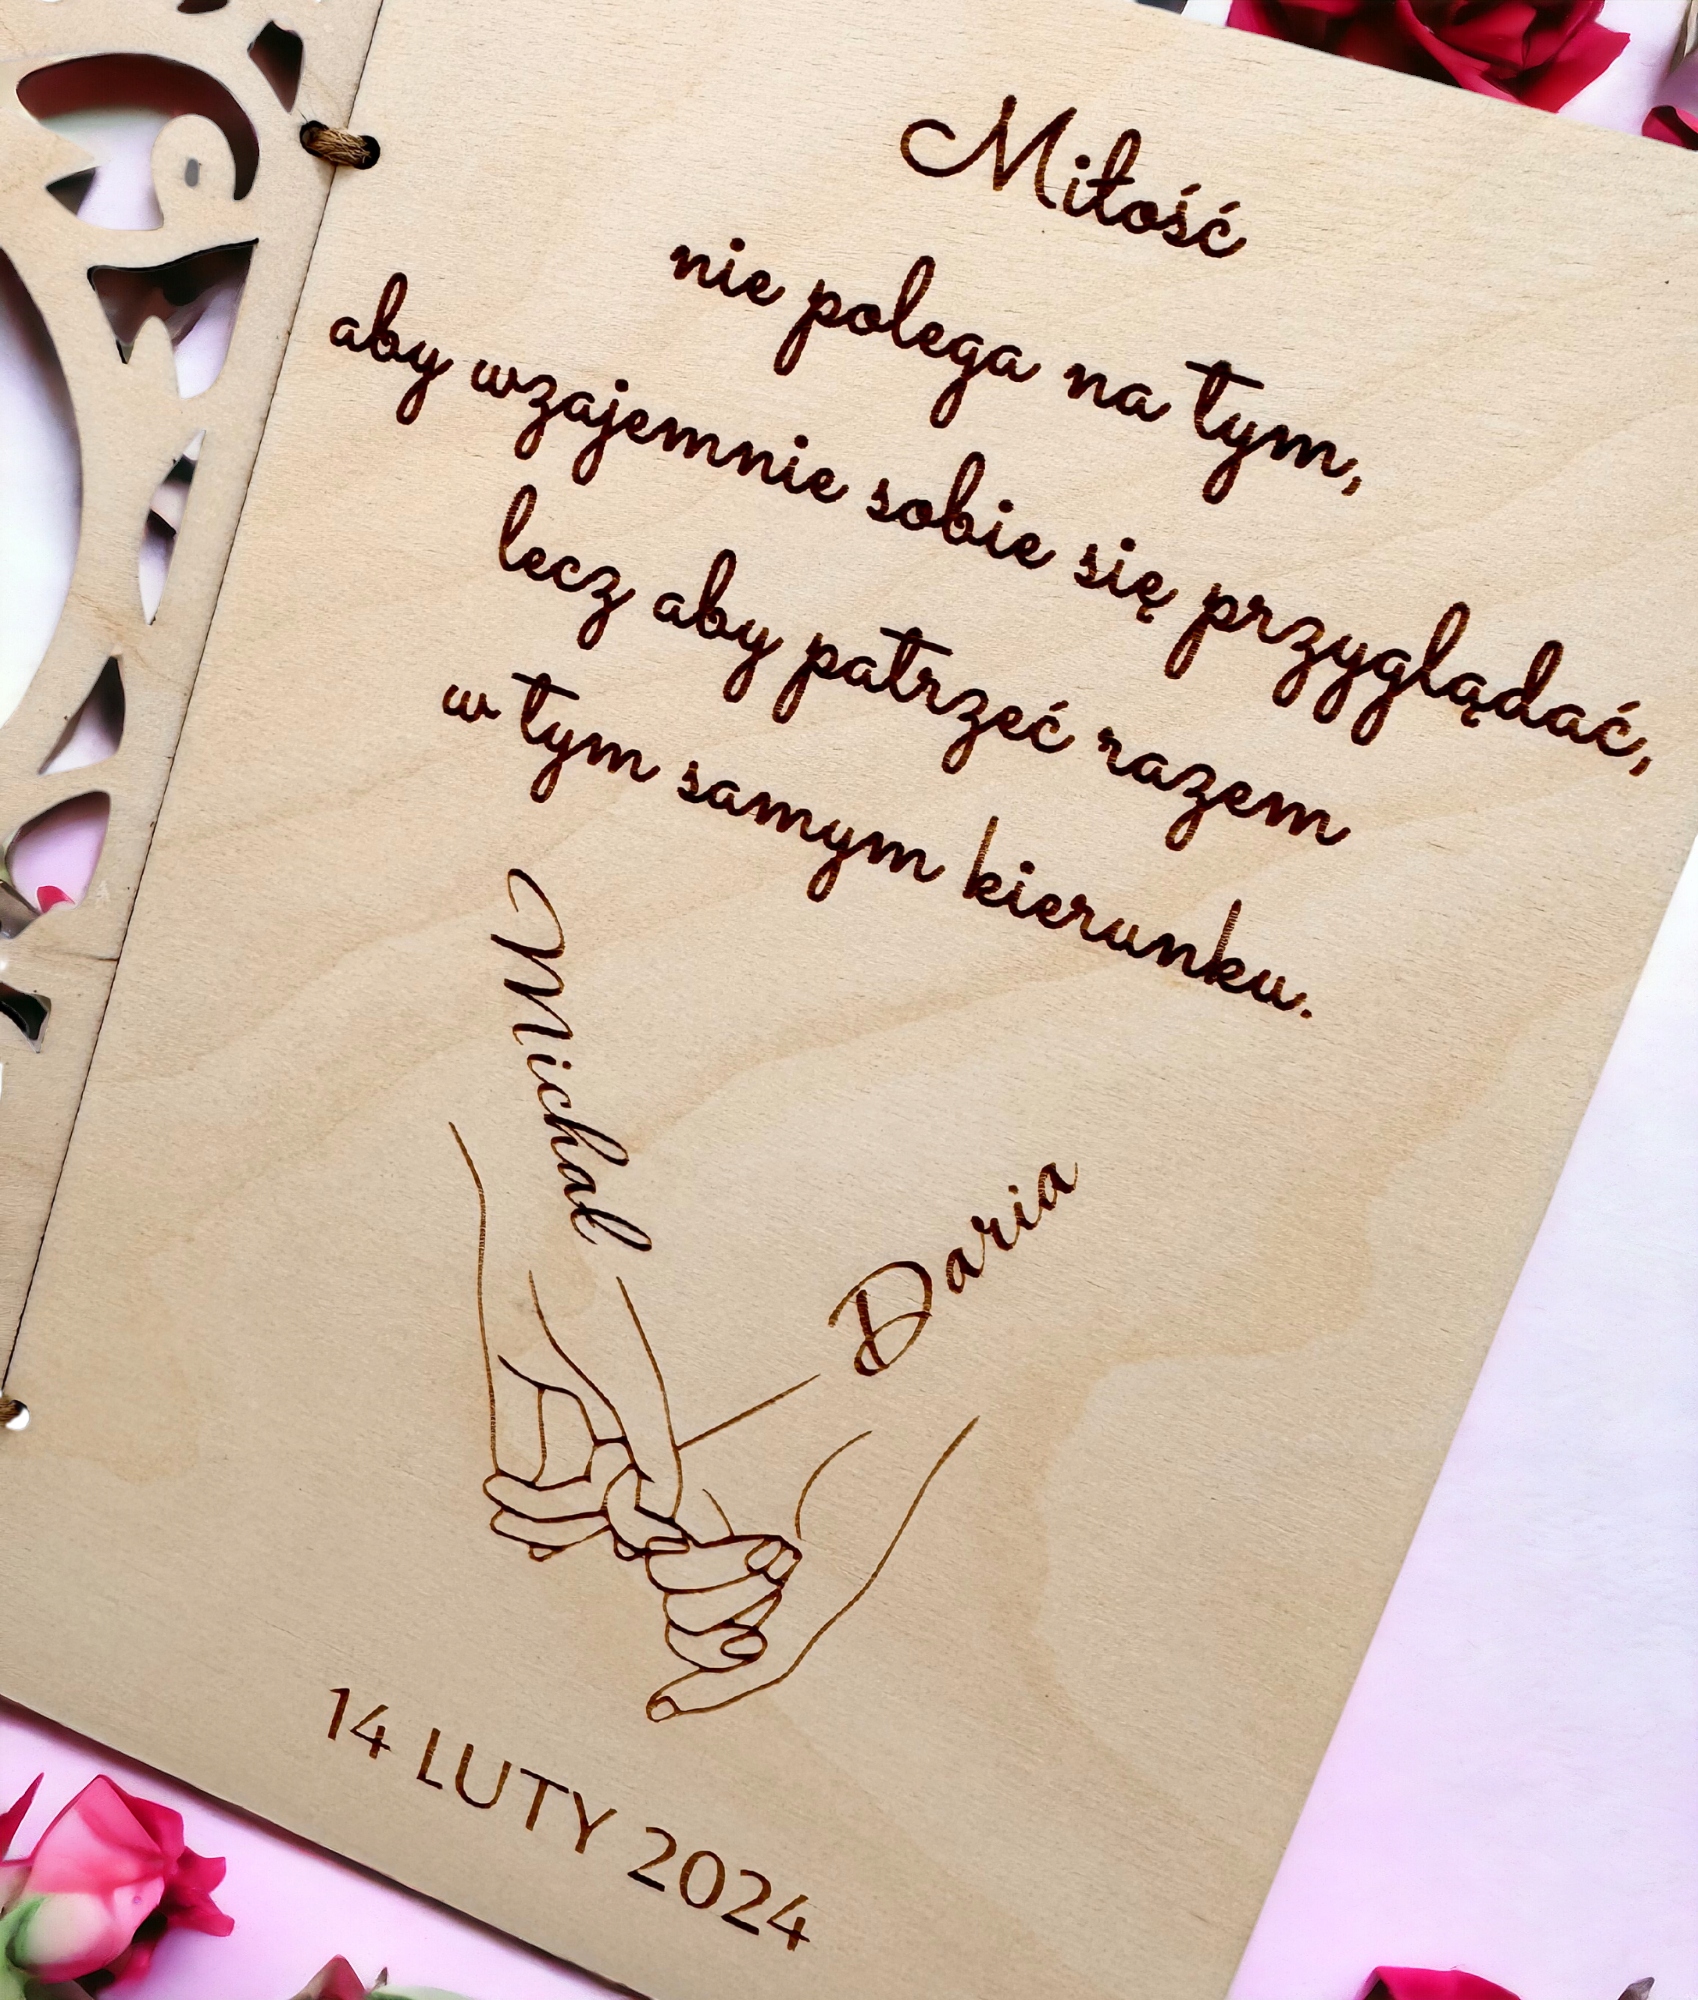 Miłość
nie polega na tym,
aby wzajemnie sobie się przyglądać,
lecz aby patrzeć razem
w tym samym kierunku.
Michał
Daria
14 LUTY 2024